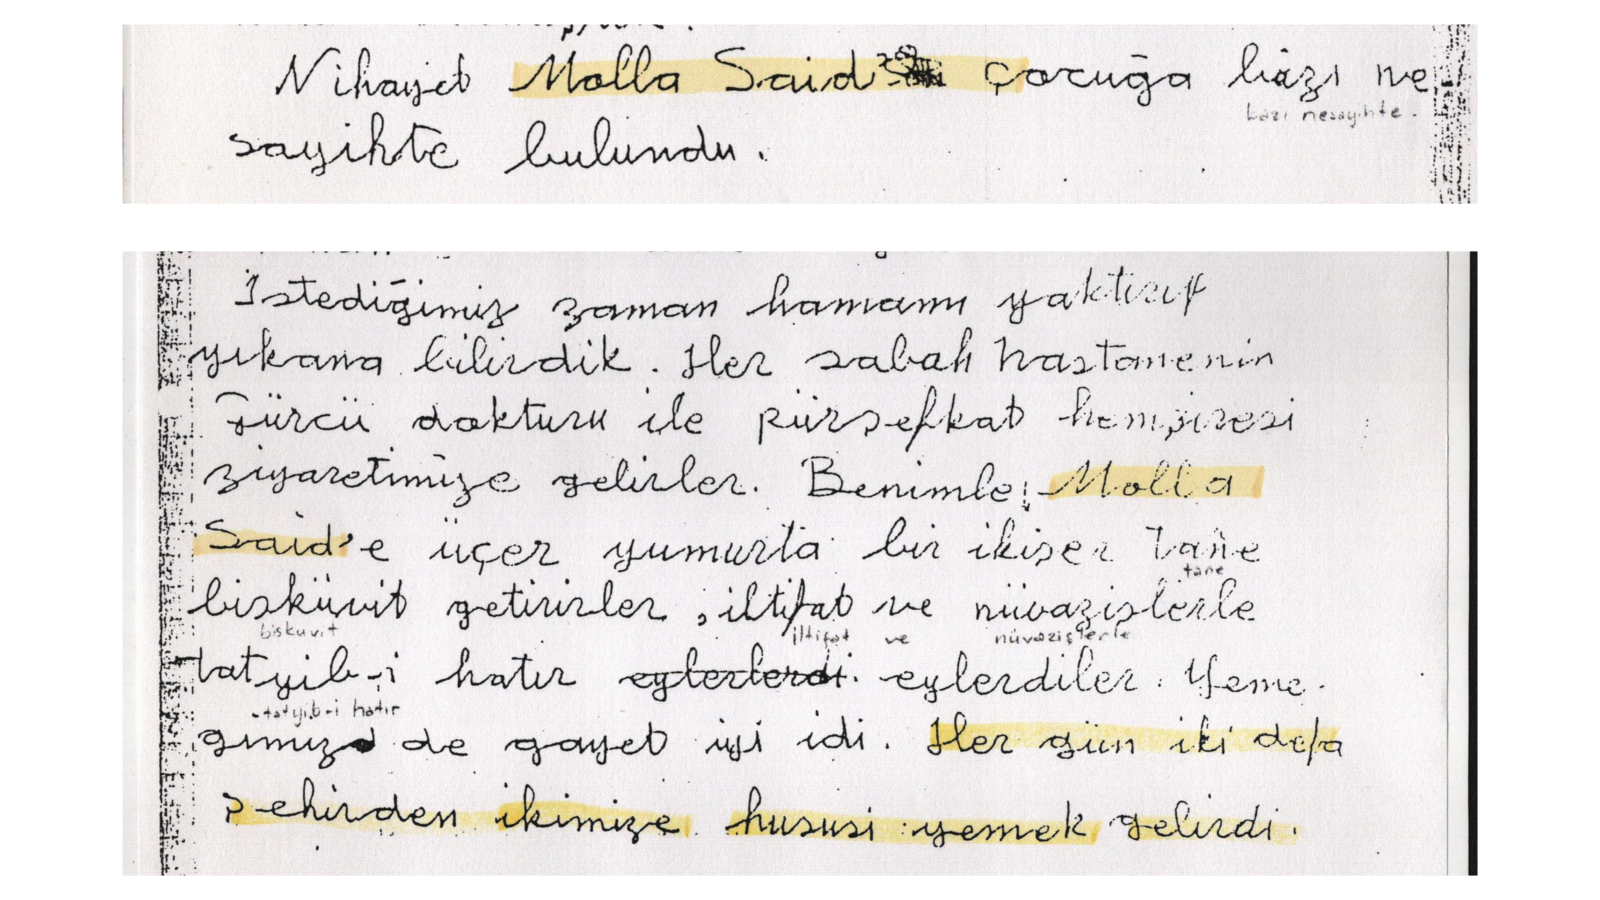 Nihayet Molla Said çocuğa bâzı ne-
bazı nesayihte.
sayihte bulundu.
İstediğimiz zaman hamamı yaktırıp
yıkana bilirdik. Her sabah hastanenin
Gürcü dokturu ile pürşefkat hemşiresi
ziyaretimize gelirler. Benimle Molla
Said'e üçer yumurta bir ikişer tane
tane
bisküvit getirirler, iltifat ve nüvazişlerle
biskuvit iltifat ve nüvazişlerle
tatyib-i hatır eylerlerdi. eylerdiler. Yeme-
tatyib-i hatır
ğimiz de gayet iyi idi. Her gün iki defa
şehirden ikimize hususi yemek gelirdi.